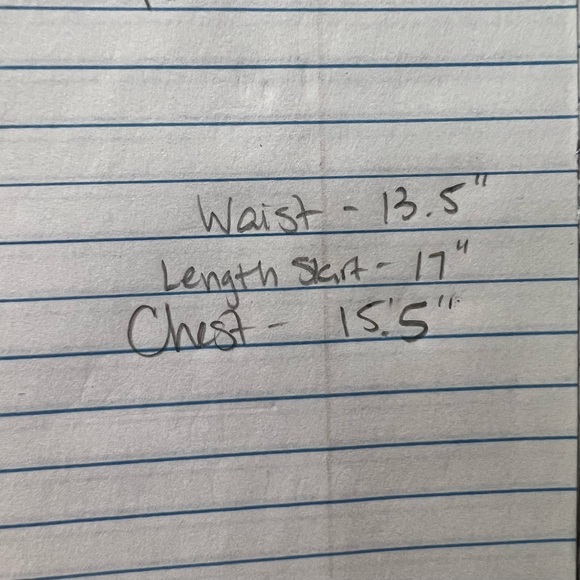 Waist - 13.5"
Length Skirt - 17"
Chest - 15.5"